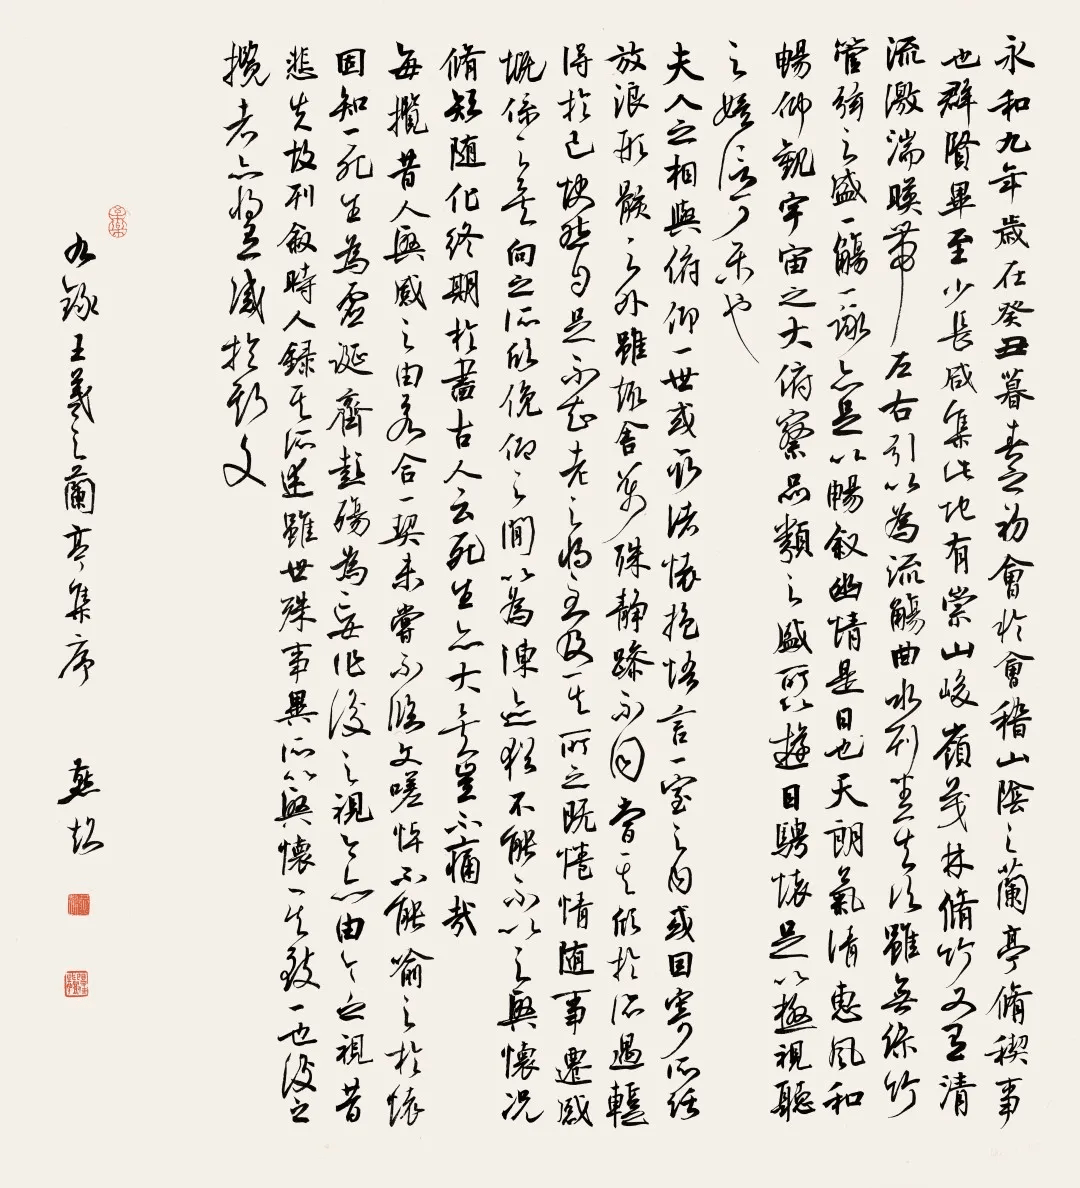 永和九年歲在癸丑暮春之初會於會稽山陰之蘭亭脩稧事
也群賢畢至少長咸集此地有崇山峻嶺茂林脩竹又有清
流激湍暎帶左右引以為流觴曲水列坐其次雖無絲竹
管弦之盛一觴一詠亦足以暢叙幽情是日也天朗氣清惠風和
暢仰觀宇宙之大俯察品類之盛所以遊目騁懷足以極視聽
之娛信可樂也
夫人之相與俯仰一世或取諸懷抱悟言一室之內或因寄所託
放浪形骸之外雖趣舍萬殊靜躁不同當其欣於所遇蹔
得於己快然自足不知老之將至及其所之既惓情隨事遷感
慨係之矣向之所欣俛仰之間以為陳迹猶不能不以之興懷況
脩短隨化終期於盡古人云死生亦大矣豈不痛哉
每攬昔人興感之由若合一契未嘗不臨文嗟悼不能喻之於懷
固知一死生為虛誕齊彭殤為妄作後之視今亦由今之視昔
悲夫故列叙時人録其所述雖世殊事異所以興懷其致一也後之
攬者亦將有感於斯文
右錄王羲之蘭亭集序